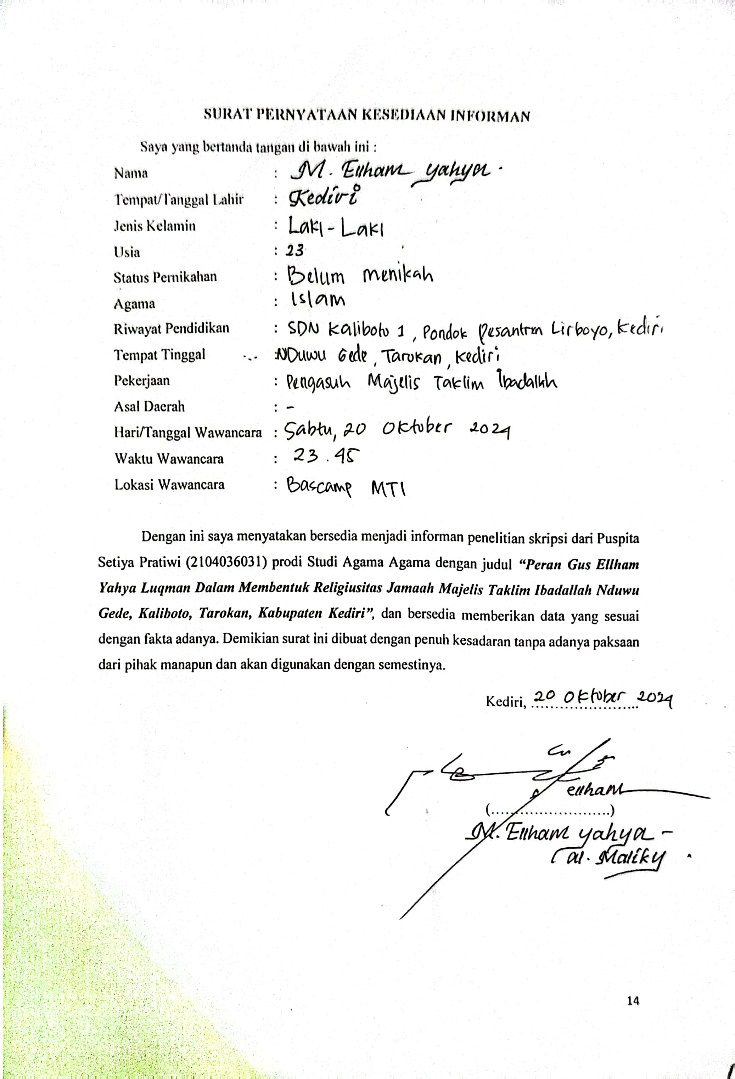 SURAT PERNYATAAN KESEDIAAN INFORMAN
Saya yang bertanda tangan di bawah ini :
Nama : M. Ellham Yahya.
Tempat/Tanggal Lahir : Kediri
Jenis Kelamin : Laki-Laki
Usia : 23
Status Pernikahan : Belum menikah
Agama : Islam
Riwayat Pendidikan : SDN Kaliboto 1, Pondok Pesantren Lirboyo, Kediri
Tempat Tinggal : NDuwu Gede, Tarokan, Kediri
Pekerjaan : Pengasuh Majelis Taklim Ibadallah
Asal Daerah : -
Hari/Tanggal Wawancara : Sabtu, 20 Oktober 2024
Waktu Wawancara : 23.45
Lokasi Wawancara : Bascamp MTI
Dengan ini saya menyatakan bersedia menjadi informan penelitian skripsi dari Puspita
Setiya Pratiwi (2104036031) prodi Studi Agama Agama dengan judul "Peran Gus Ellham
Yahya Luqman Dalam Membentuk Religiusitas Jamaah Majelis Taklim Ibadallah Nduwu
Gede, Kaliboto, Tarokan, Kabupaten Kediri", dan bersedia memberikan data yang sesuai
dengan fakta adanya. Demikian surat ini dibuat dengan penuh kesadaran tanpa adanya paksaan
dari pihak manapun dan akan digunakan dengan semestinya.
Kediri, 20 Oktober 2024
ellham
(........................)
M. Ellham Yahya -
al. Maliky.
14